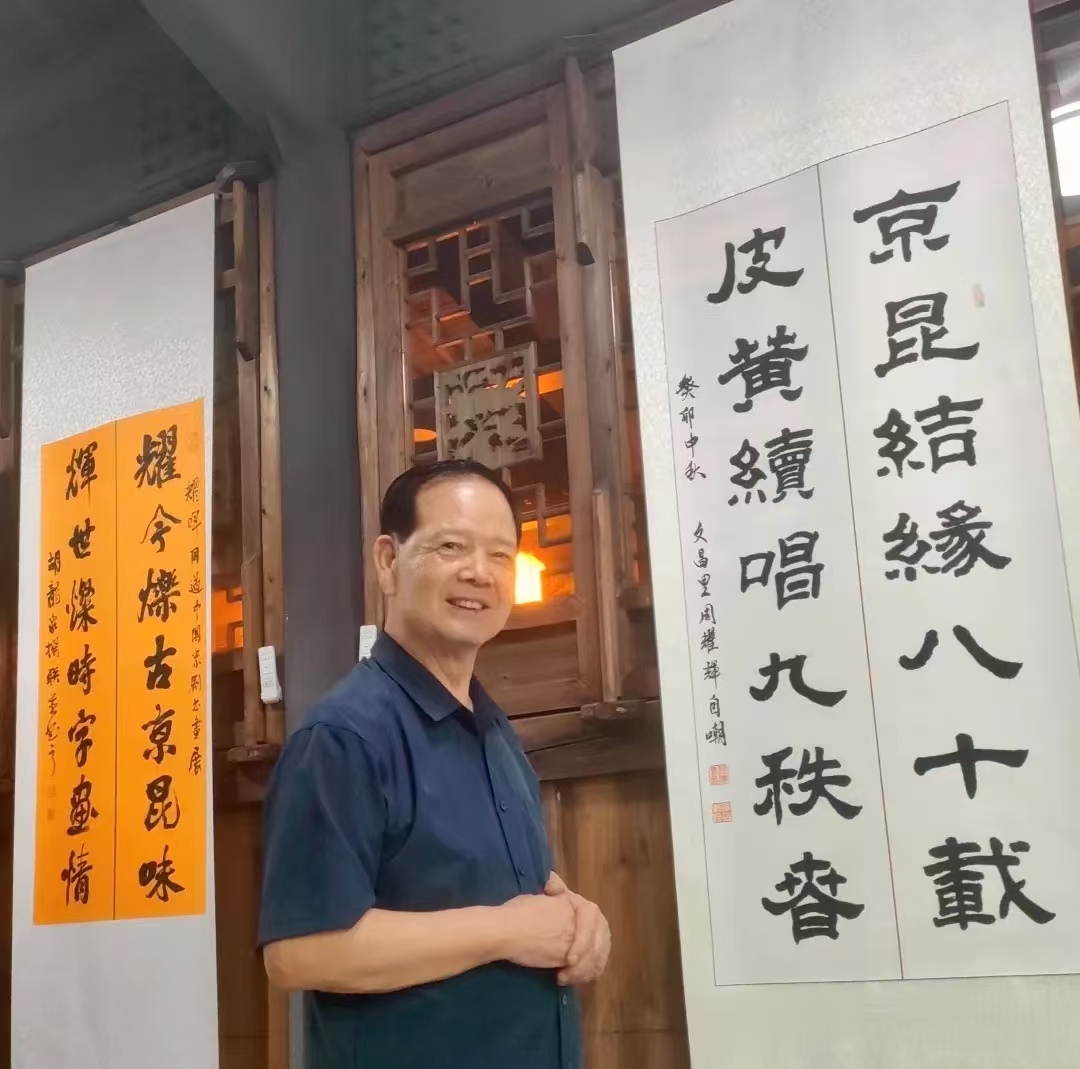 京昆結緣八十載
皮黄續唱九秩春
癸卯中秋 文昌里周耀輝自嘲
耀暉同道中國京劇書畫展
耀今爍古京昆味
輝世燦時字畫情
胡龍泉撰聯並書